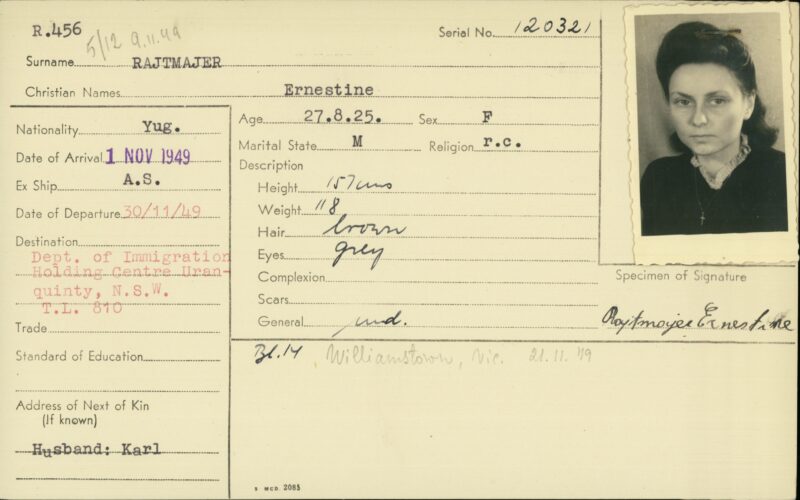 R.456
5/12 9.11.49
Serial No. 120321
Surname RAJTMAJER
Christian Names Ernestine
Nationality Yug.
Date of Arrival 1 NOV 1949
Ex Ship A.S.
Date of Departure 30/11/49
Destination
Dept. of Immigration
Holding Centre Uran-
quinty, N.S.W.
T.L. 810
Trade
Standard of Education
Address of Next of Kin
(If known)
Husband: Karl
Age 27.8.25. Sex F
Marital State M Religion r.c.
Description
Height 157cms
Weight 118
Hair brown
Eyes grey
Complexion
Scars
General med.
Specimen of Signature
Rajtmajer Ernestine
Bl.14 Williamstown, Vic. 21.11.49
S MCD 2085